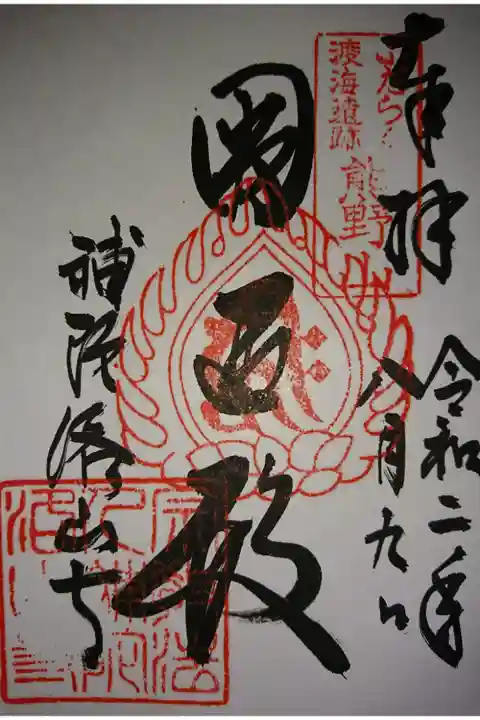 奉拝
令和二年
八月九日
ふだらく
渡海遺跡
熊野
圓通殿
補陀洛山寺